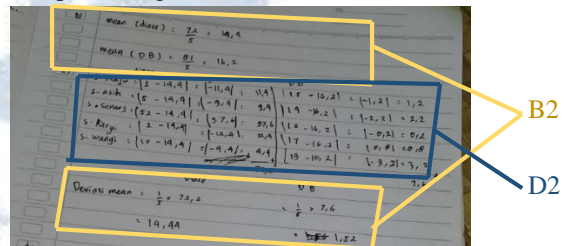 b) mean (diare) = 72/5 = 14,4
mean (DB) = 81/5 = 16,2
|3 - 14,4| = |-11,4| = 11,4 |15 - 16,2| = |-1,2| = 1,2
S. asih |5 - 14,4| = |-9,4| = 9,4 |14 - 16,2| = |-2,2| = 2,2
S. Serang |52 - 14,4| = |37,6| = 37,6 |16 - 16,2| = |-0,2| = 0,2
|2 - 14,4| = |-12,4| = 12,4 |17 - 16,2| = |0,8| = 0,8
S. Wangi |10 - 14,4| = |-4,4| = 4,4 |13 - 16,2| = |-3,2| = 3,2
7,6
DB
Deviasi mean = 1/5 x 72,2 = 1/5 x 7,6
= 14,44 = 1,52
B2
D2